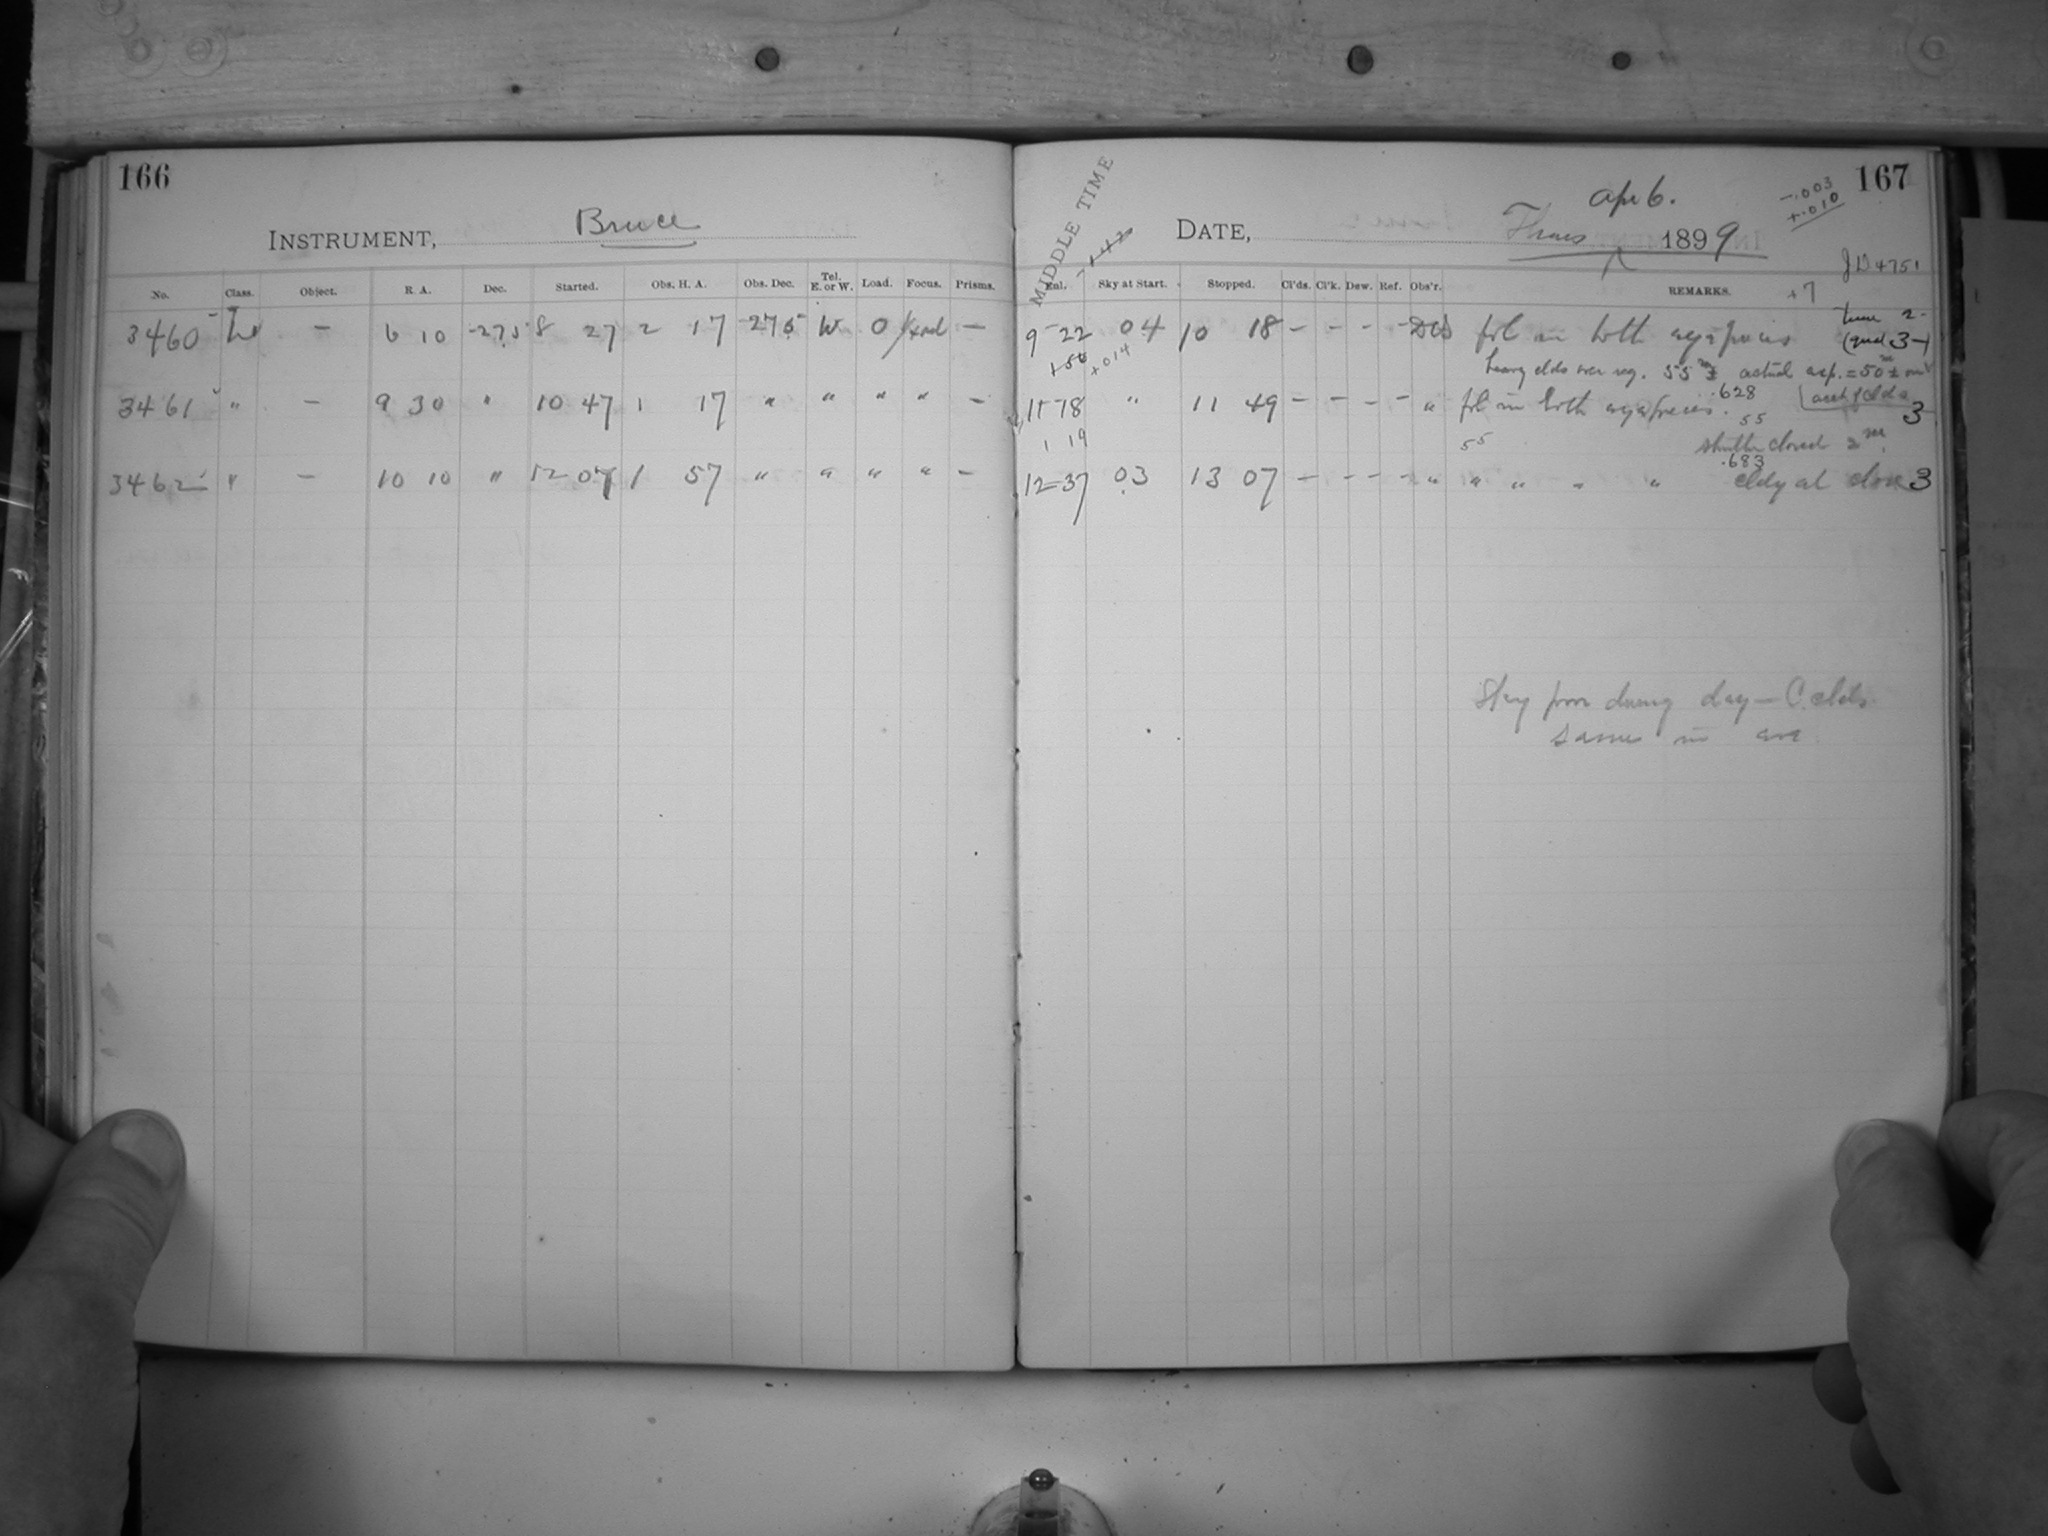 166
INSTRUMENT, Bruce
No. Class. Object. R. A. Dec. Started. Obs. H. A. Obs. Dec. Tel. E. or W. Load. Focus. Prisms.
3460 — 6 10 -27.5 8 27 2 17 -27.5 W 0 —
3461 " — 9 30 " 10 47 1 17 " " " " —
3462 " — 10 10 " 12 07 1 57 " " " " —
167
MIDDLE TIME
Apr 6. -.003
+.010
DATE, Thurs 1899
JD 4751
Enl. Sky at Start. Stopped. Cl'ds. Cl'k. Dew. Ref. Obs'r. REMARKS. +7
9-22 04 10 18 - - - - fol in both 2-
+50 +014 (qual 3-)
heavy clds over reg. 55m± actual exp. = 50m±
11-18 " 11 49 - - - - " fol in both .628 clds 3
1 19 55 55 shutter closed 2m.
.683
12-37 03 13 07 - - - - " " " " " cldy at close 3
Sky poor during day — C. clds
same in eve